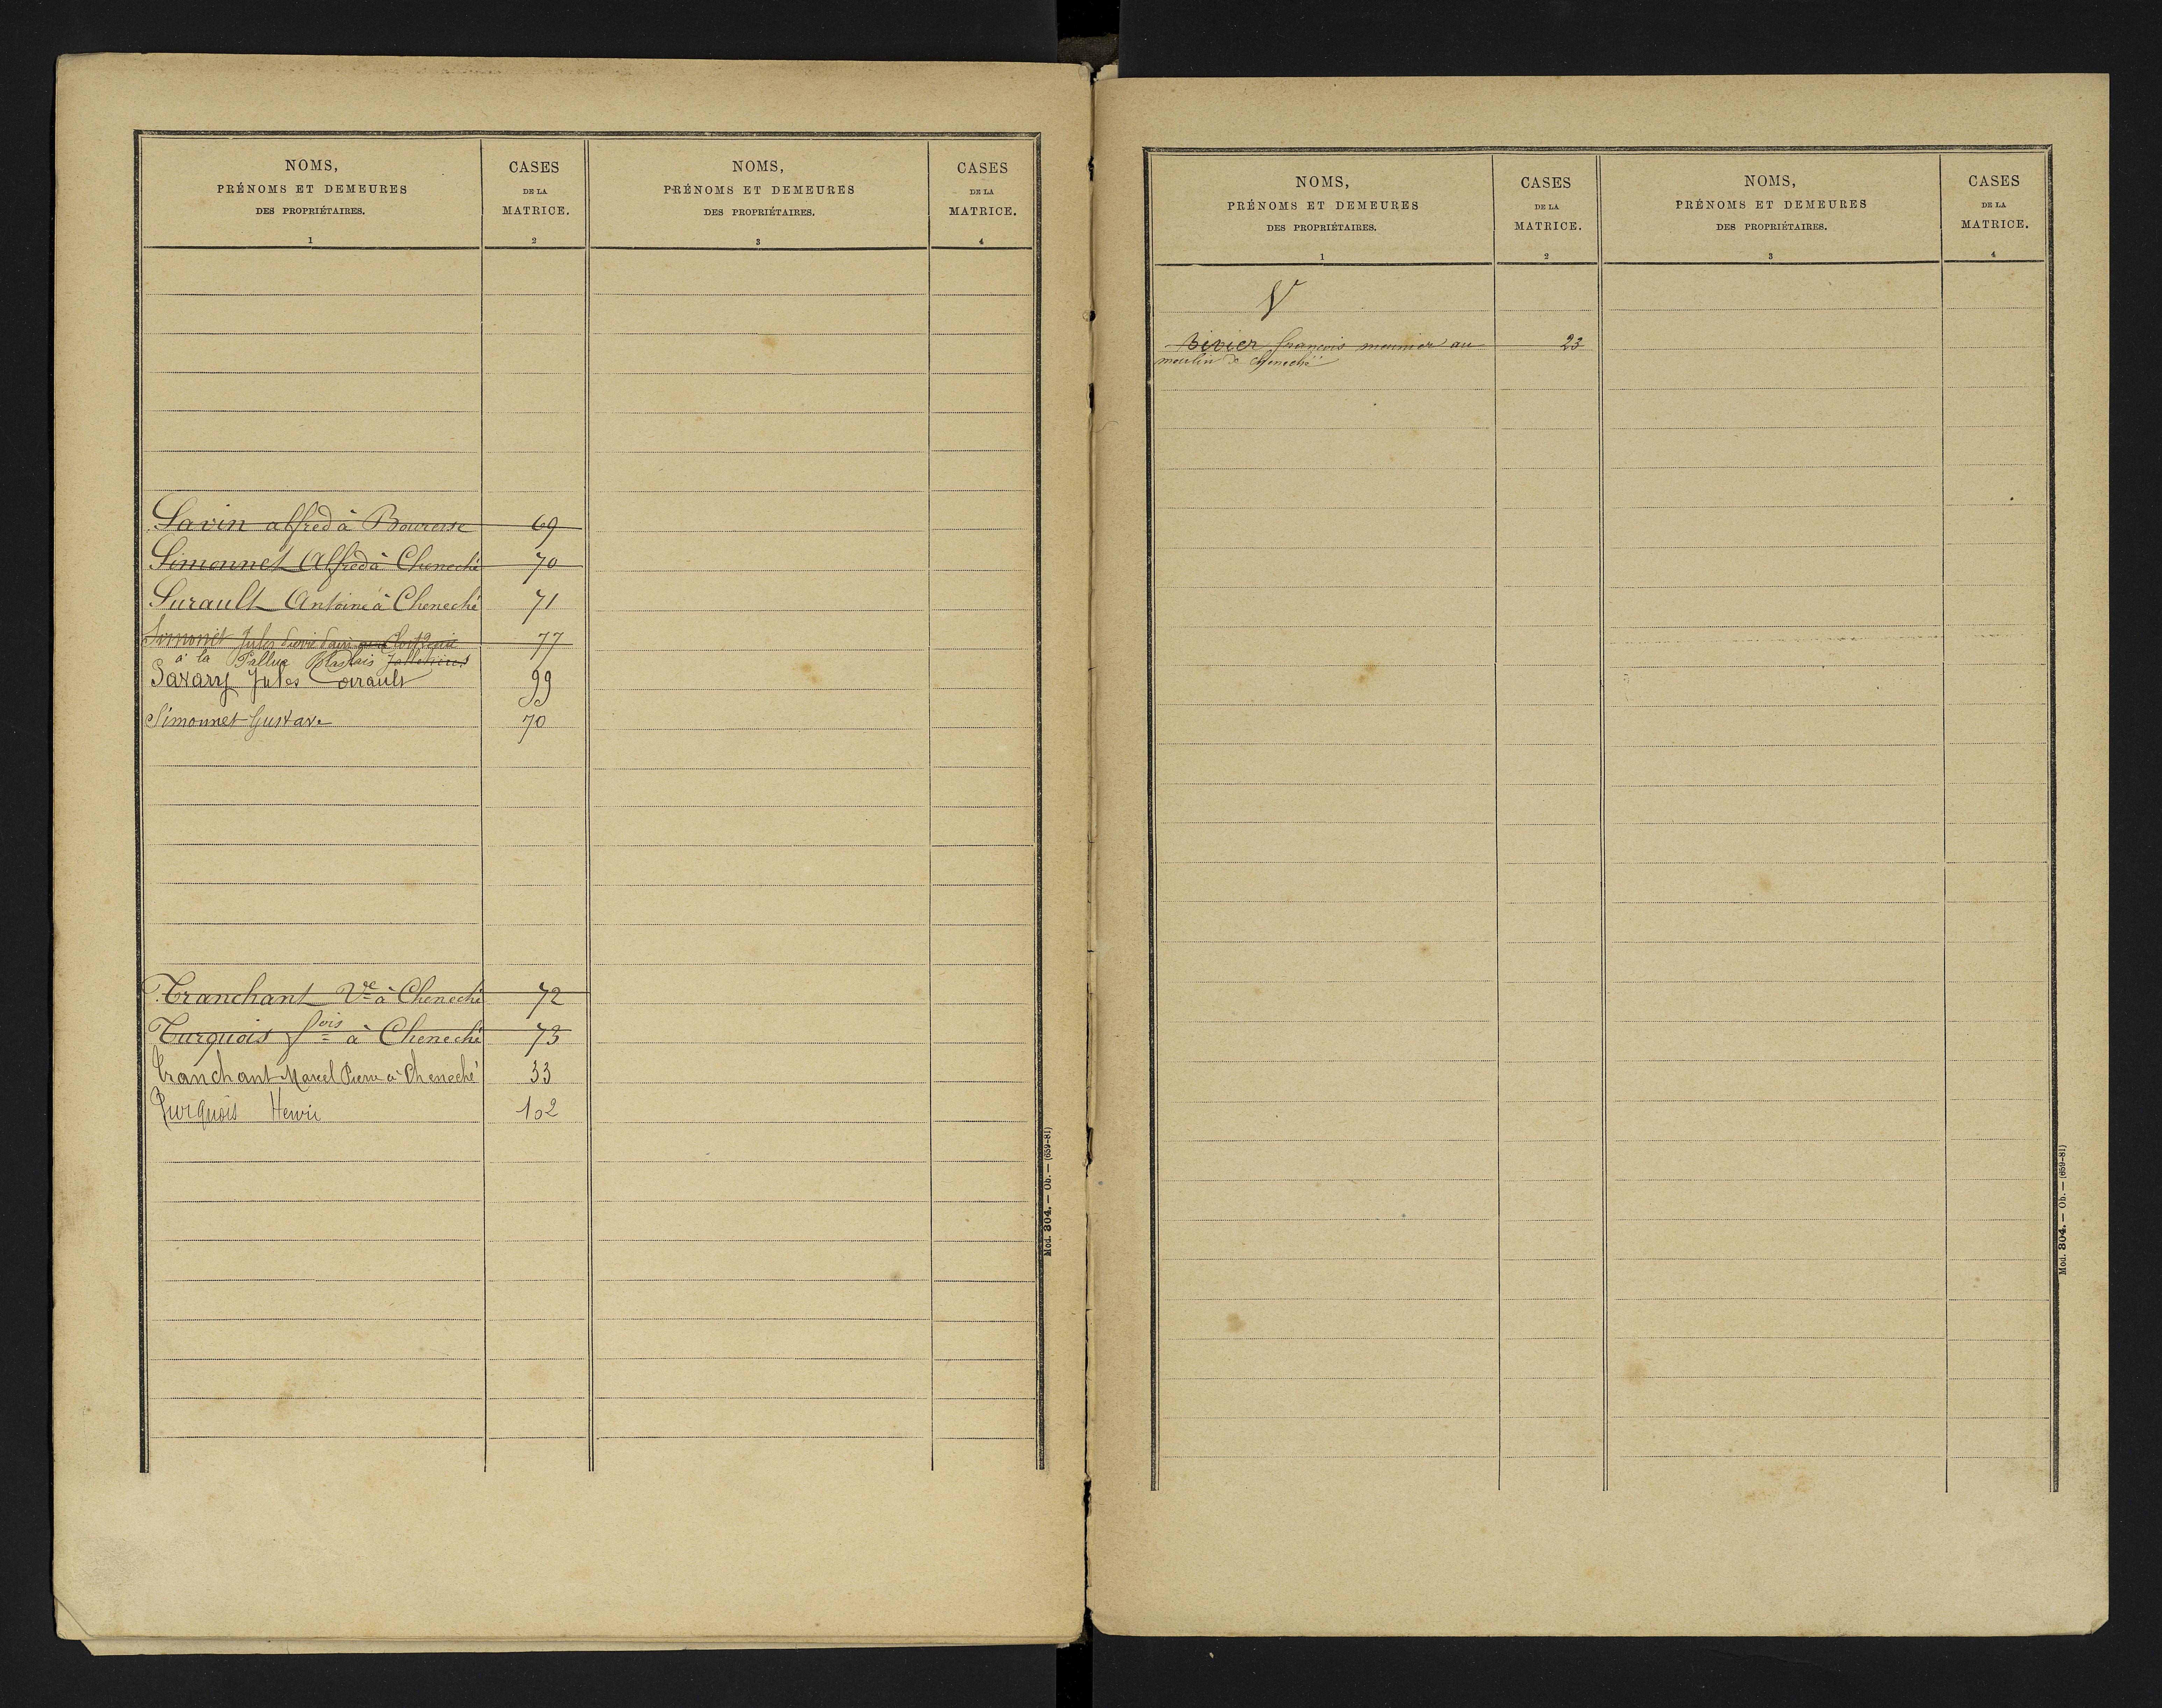 NOMS,
PRÉNOMS ET DEMEURES
DES PROPRIÉTAIRES.
1
CASES
DE LA
MATRICE.
2
NOMS,
PRÉNOMS ET DEMEURES
DES PROPRIÉTAIRES.
3
CASES
DE LA
MATRICE.
4
Savin alfred à Bouresse 69
Simonnet Alfred à Cheneché 70
Surault Antoine à Cheneché 71
Simonet Jules 77
à la Pallue Blaslais
Savary Jules Coirault 99
Simonnet Gustave 70
Tranchant Vve à Cheneché 72
Turquois fois à Cheneché 73
Tranchant Marcel Pierre à Cheneché 33
Turquois Henri 102
Mod. 804. — Ob. — (659-81)
NOMS,
PRÉNOMS ET DEMEURES
DES PROPRIÉTAIRES.
1
CASES
DE LA
MATRICE.
2
NOMS,
PRÉNOMS ET DEMEURES
DES PROPRIÉTAIRES.
3
CASES
DE LA
MATRICE.
4
V
françois meunier au 23
moulin de Cheneché
Mod. 804. — Ob. — (659-81)